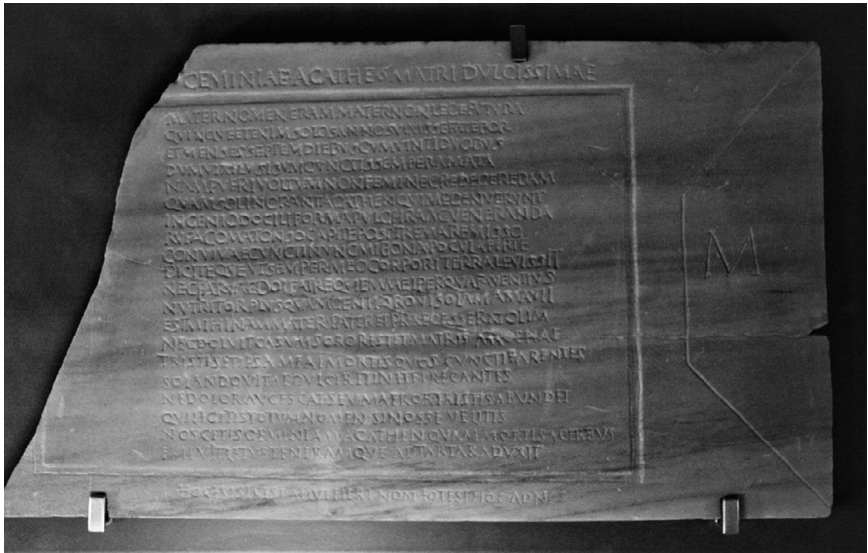 GEMINIAE AGATHE MATRI DVLCISSIMAE
MATER NOMEN ERAM MATER NON LEGE FVTVRA
QVINQVE ETENIM SOLOS ANNOS VIXISSE FATEBOR
ET MENSES SEPTEM DIEBVS CVM VINTI DVOBVS
DVM VIXI LVSI SVM CVNCTIS SEMPER AMATA
NAM PVERI VOLTVM NON FEMINE CREDE GEREBAM
QVAM SOLI NORANT AGATHEN QVI ME GENVERVNT
INGENIO DOCILI FORMA PVLCHRA AC VENERANDA
RVFA COMA TONSO CAPITE POSTREMA REMISSO
CONVIVAE CVNCTI NVNC MI BONA POCVLA FERTE
DICITEQVE VT SEMPER MEO CORPORI TERRA LEVIS SIT
NEC MEI PERQVAM FAVENTIVS
NVTRITOR PLVSQVAM GENITOR QVI SOLAM AMAVIT
EST MIHI NAM MATER PATER ET PRAECESSERAT OLIM
NEC DOLVIT CASVM SOROR EST ET MATRIS AMOENAE
TRISTIS ET IPSA MEAE MORTIS QVOS CVNCTI PARENTES
SOLANDO VITAE DVLCI RETINETE PRECANTES
NE DOLOR AVGESCAT SEV MAEROR TRISTIS ABVNDET
QVI LEGITIS TOTVM NOMEN SI NOSSE VELITIS
NOSCETIS GEMINIAM AGATHEN QVAM MORTIS ACERBVS
ERIPVIT LETVS TENERAMQVE AD TARTARA DVXIT
HOC EST SIC EST ALIVT FIERI NON POTEST HOC AD NOS
M